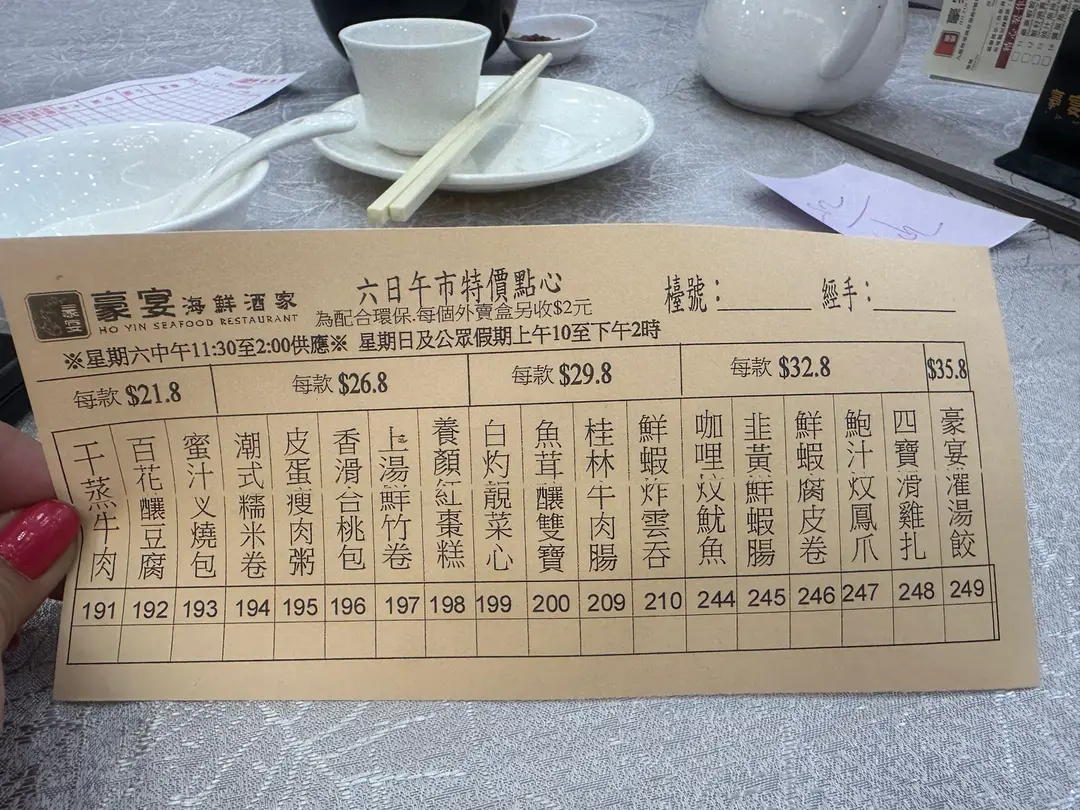 豪宴海鮮酒家
HO YIN SEAFOOD RESTAURANT
六日午市特價點心
為配合環保.每個外賣盒另收$2元
檯號：
經手：
※星期六中午11:30至2:00供應※ 星期日及公眾假期上午10至下午2時
每款 $21.8
每款 $26.8
每款 $29.8
每款 $32.8
$35.8
干蒸牛肉
百花釀豆腐
蜜汁义燒包
潮式糯米卷
皮蛋瘦肉粥
香滑台桃包
上湯鮮竹卷
養顏紅棗糕
白灼靚菜心
魚茸釀雙寶
桂林牛肉腸
鮮蝦炸雲吞
咖哩炆魷魚
韭黃鮮蝦腸
鮮蝦腐皮卷
鮑汁炆鳳爪
四寶滑雞扎
豪宴灌湯餃
191 192 193 194 195 196 197 198 199 200 209 210 244 245 246 247 248 249